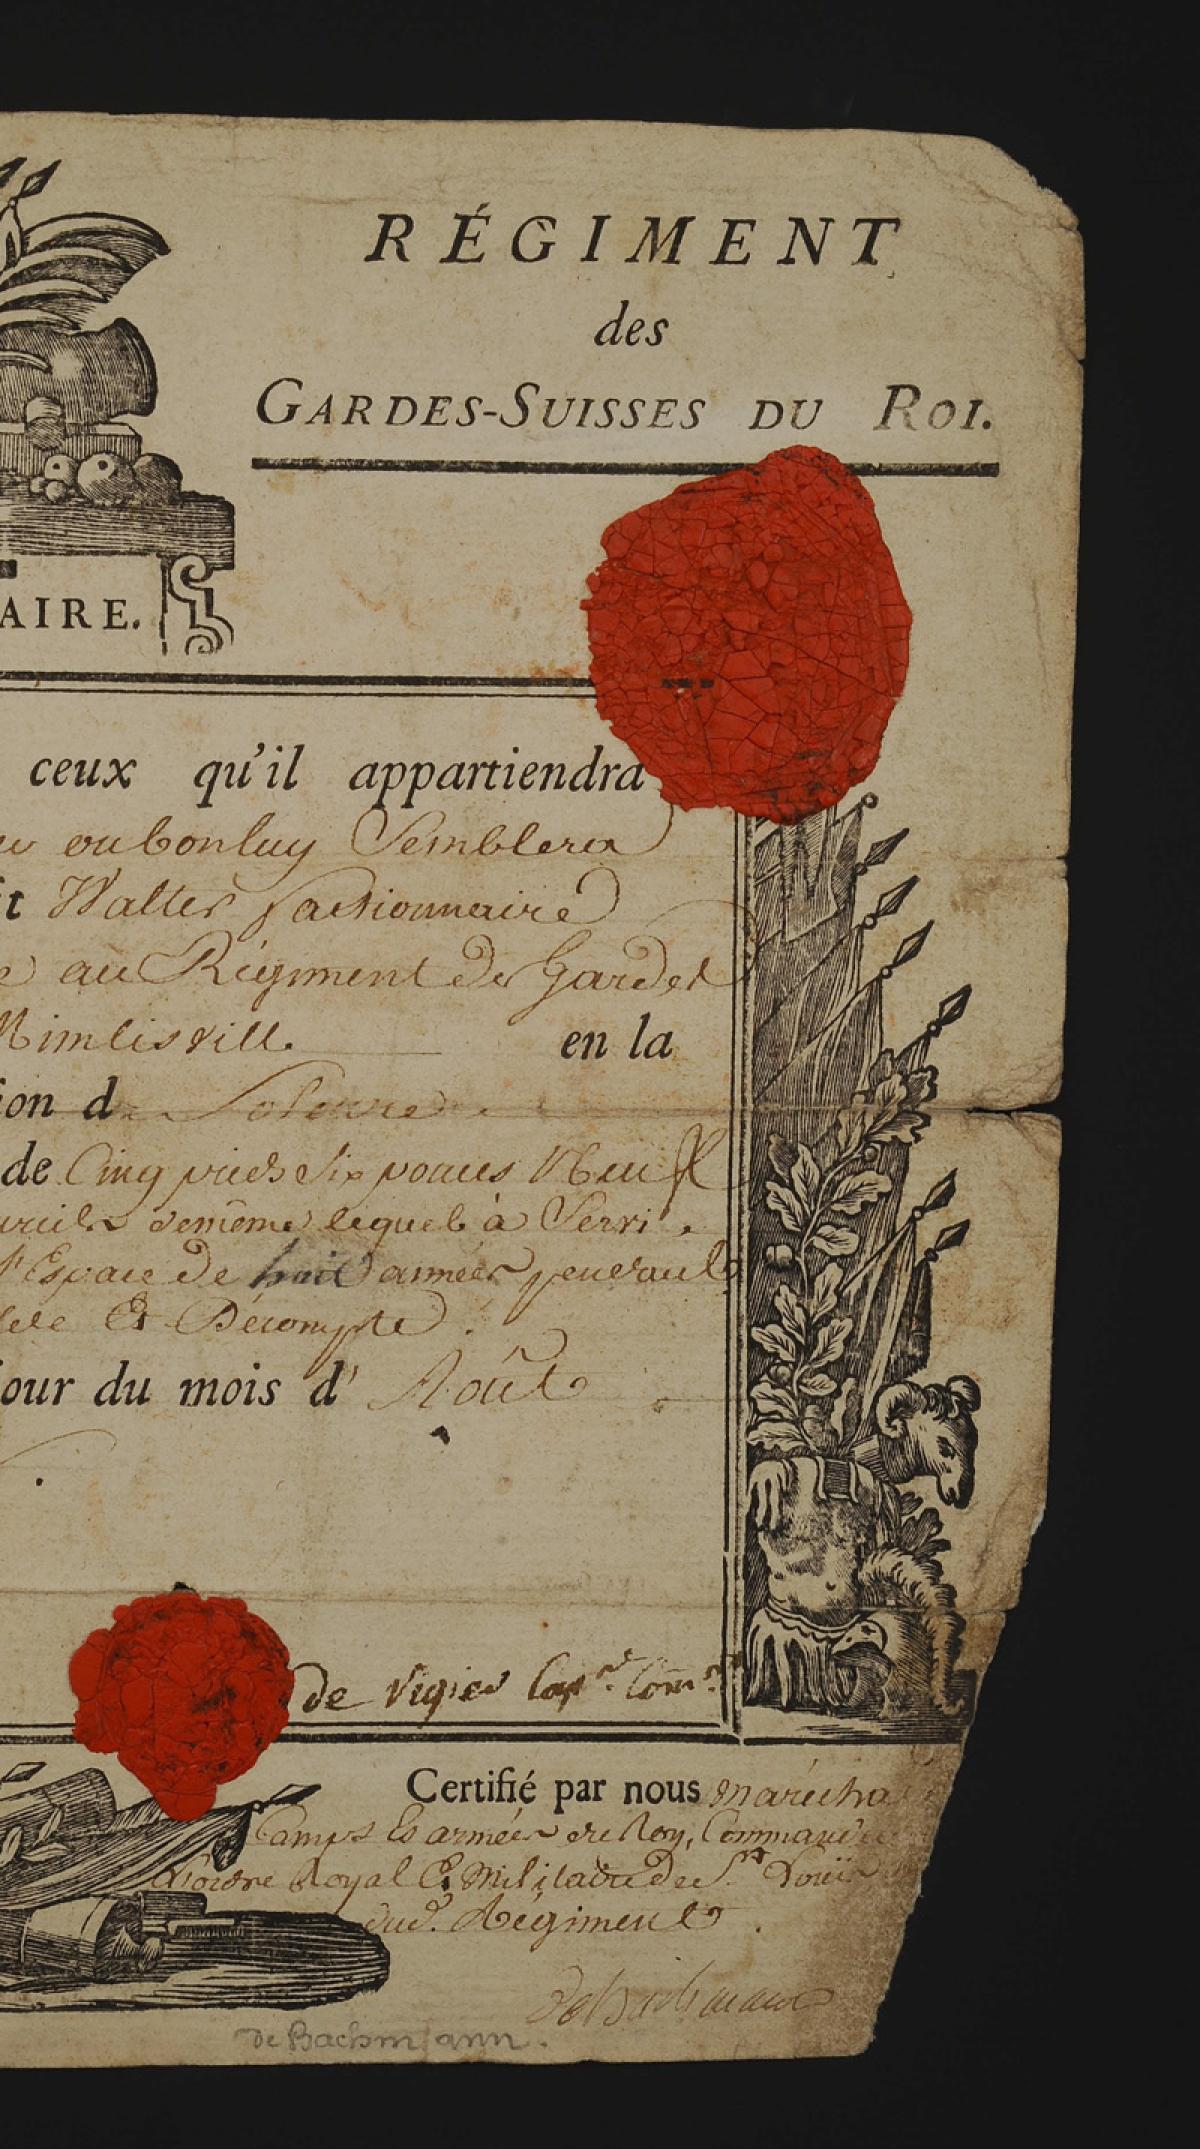 RÉGIMENT
des
GARDES-SUISSES DU ROI.
AIRE.
ceux qu'il appartiendra
ou bon luy Semblera
t Walter factionnaire
e au Régiment des Gardes
Mimlisvill en la
ion d Soleure
de Cinq pieds Six pouces Neuf
de même lequel à Servi
l'Espace de huit années
Et Décompte
jour du mois d' Août
de Vigier Cap.ne Com.t
Certifié par nous Marécha
Camps Es armées du Roy, Command
L'ordre Royal Et Militaire de St Louis
dud. Regiment
deBachmann
de Bachmann.